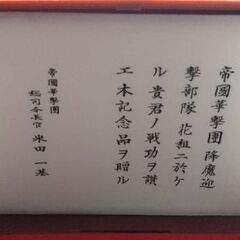 帝國華擊團 降魔迎
擊部隊 花組ニ於ケ
ル貴君ノ戦功ヲ讃
エ本記念品ヲ贈ル
帝國華擊團
総司令長官 米田一基